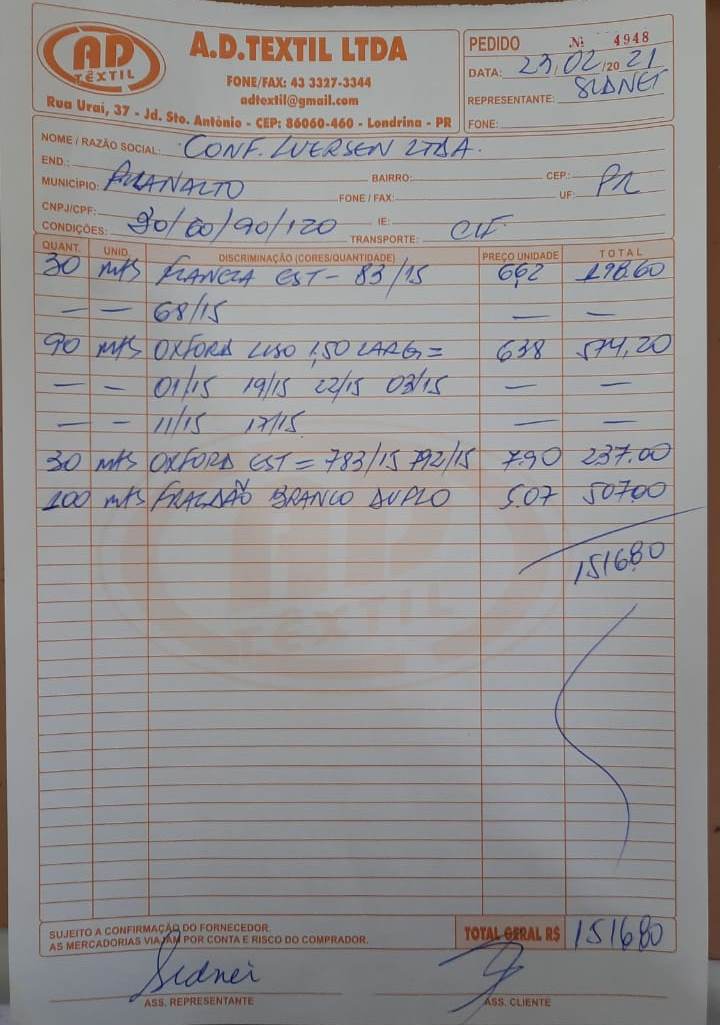 AD
TÊXTIL
A.D.TEXTIL LTDA
FONE/FAX: 43 3327-3344
adtextil@gmail.com
Rua Uraí, 37 - Jd. Sto. Antônio - CEP: 86060-460 - Londrina - PR
PEDIDO Nº 4948
DATA: 23/02/2021
REPRESENTANTE: SIDNEI
FONE:
NOME / RAZÃO SOCIAL: CONF. LUERSEN LTDA.
END.: BAIRRO: CEP:
MUNICÍPIO: PLANALTO FONE / FAX: UF: PR
CNPJ/CPF: IE:
CONDIÇÕES: 30/60/90/120 TRANSPORTE: CIF
QUANT. UNID. DISCRIMINAÇÃO (CORES/QUANTIDADE) PREÇO UNIDADE TOTAL
30 mts EST - 83/15 6,62 198.60
— — 68/15 — —
90 mts OXFORD LISO 1,50 LARG = 638 574,20
— — 01/15 19/15 22/15 03/15 — —
— — 11/15 17/15 — —
30 mts OXFORD EST = 783/15 792/15 7.90 237.00
100 mts FRALDÃO BRANCO DUPLO 5.07 507.00
1516.80
AD
TÊXTIL
SUJEITO A CONFIRMAÇÃO DO FORNECEDOR.
AS MERCADORIAS VIAJAM POR CONTA E RISCO DO COMPRADOR.
TOTAL GERAL R$ 151680
Sidnei
ASS. REPRESENTANTE ASS. CLIENTE